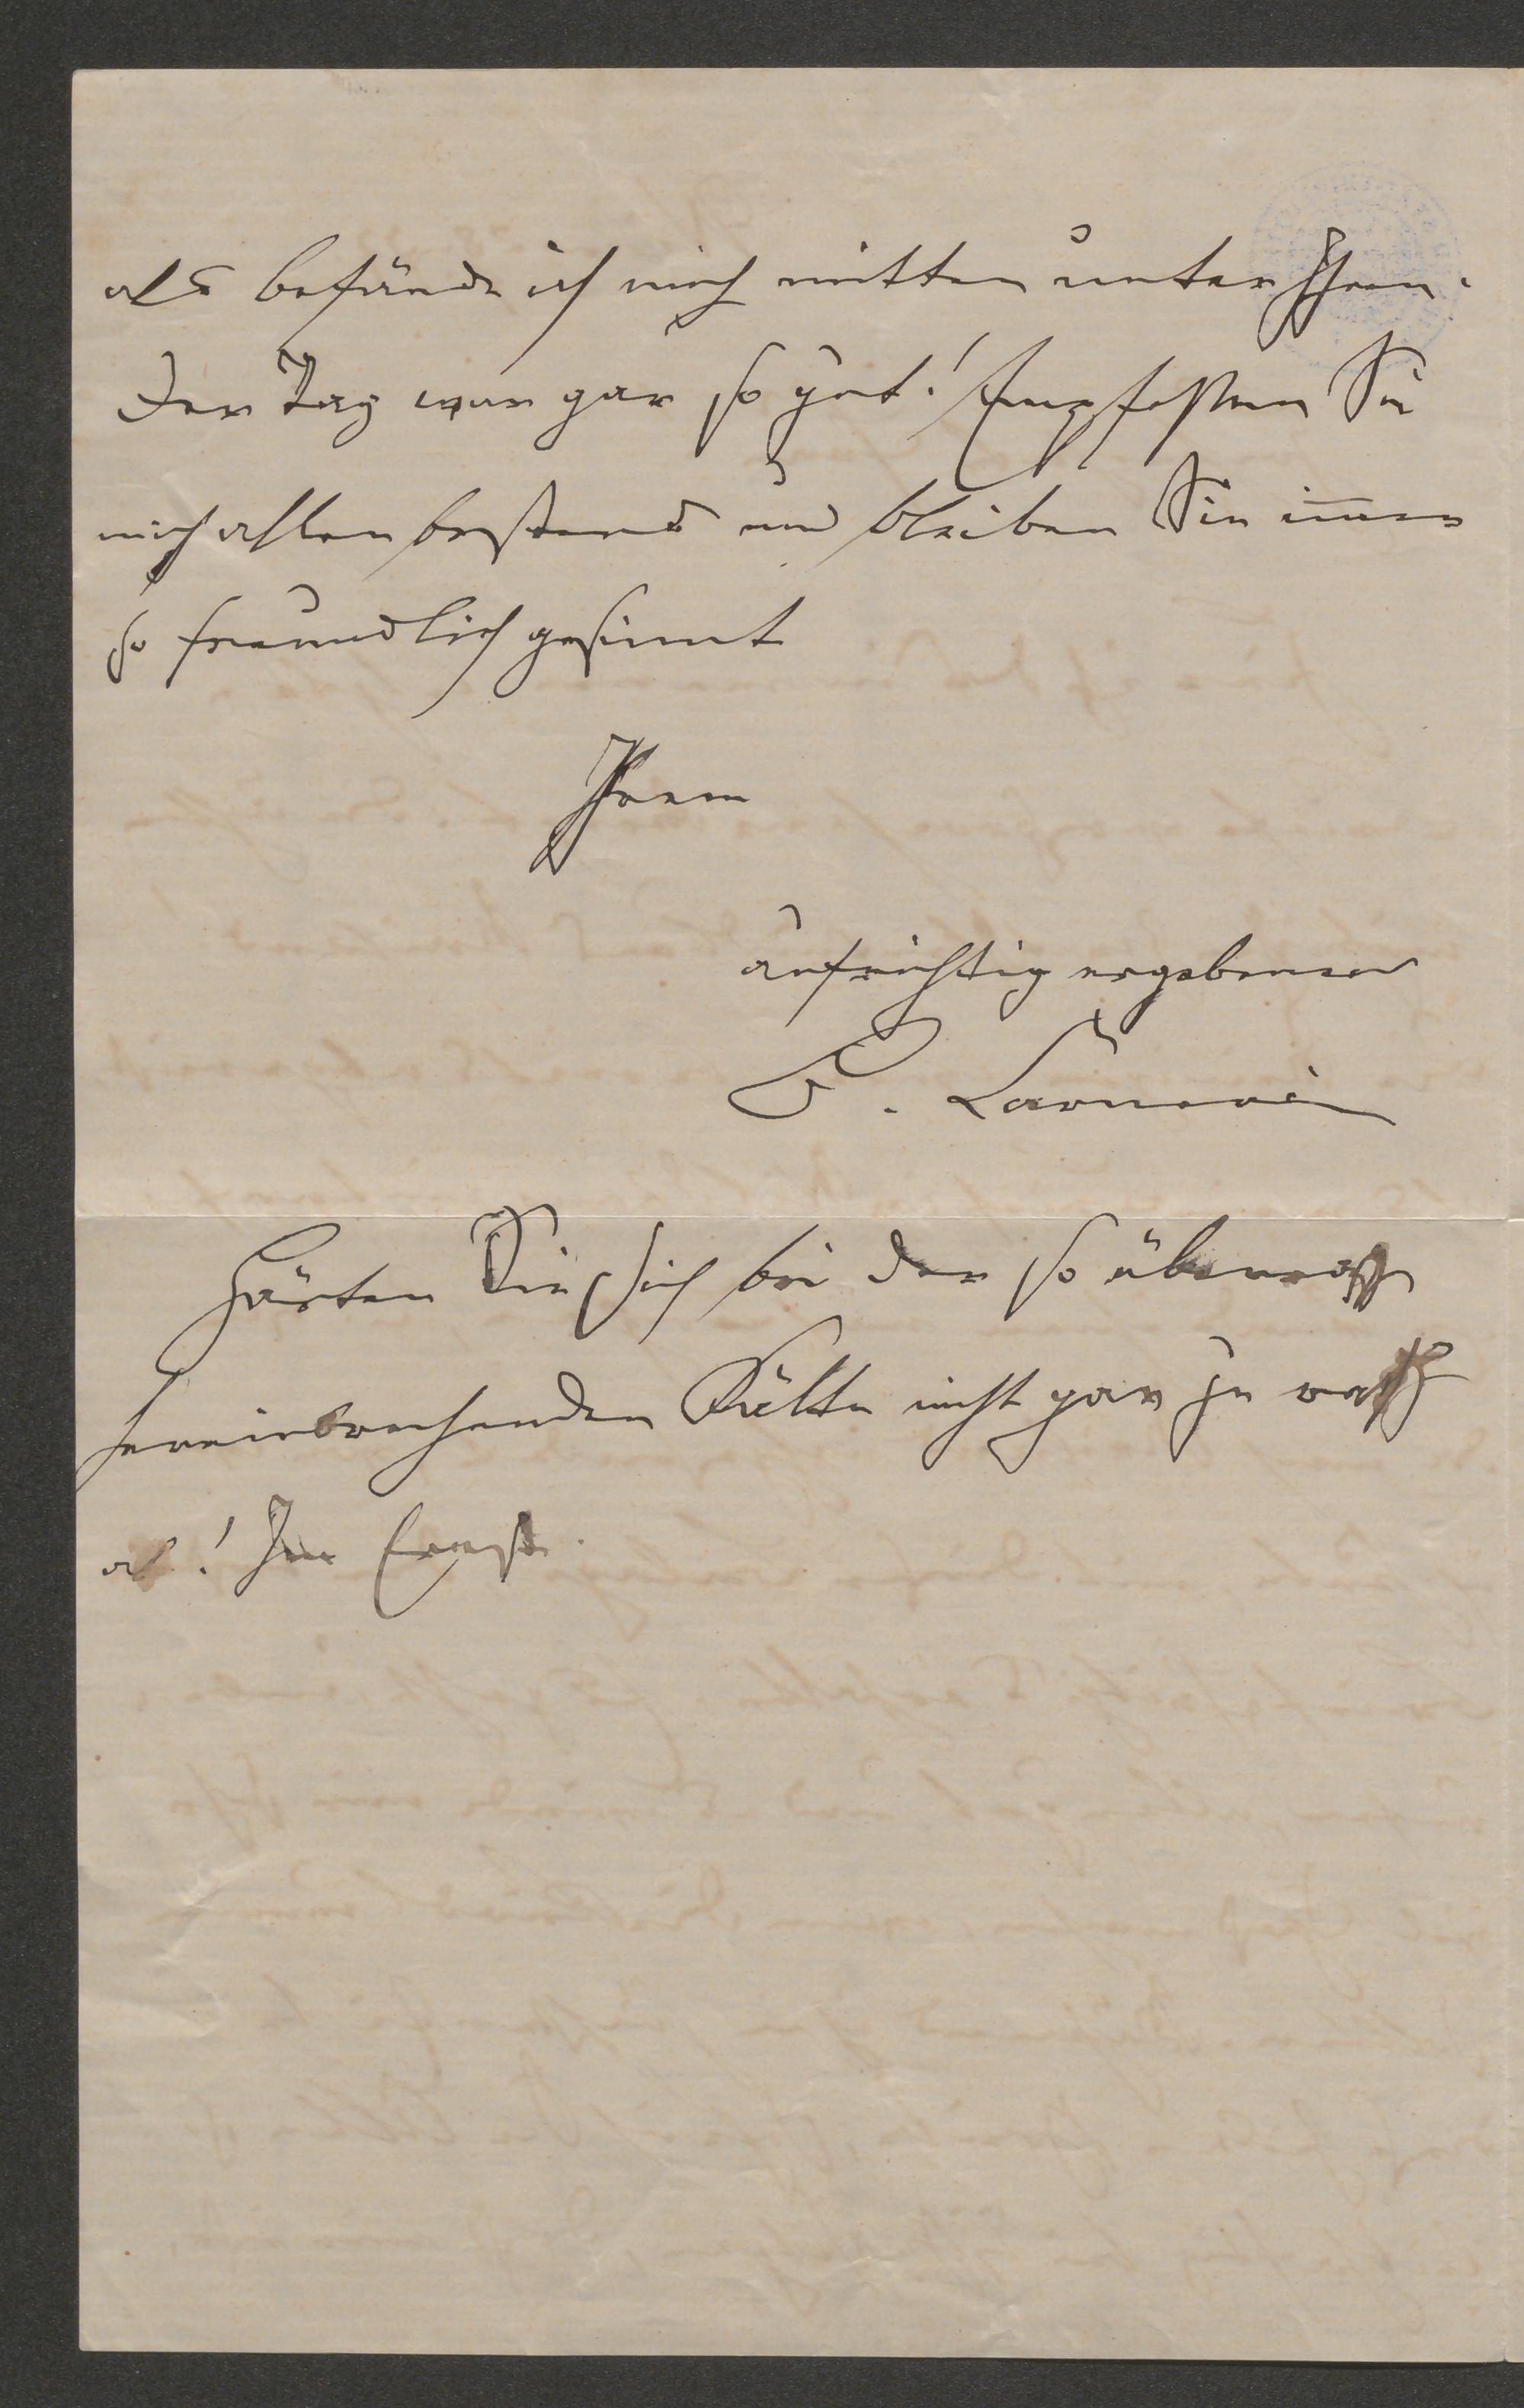 als befände ich mich mitten unter Ihnen.
Der Tag war gar so gut! Empfehlen Sie
mich allen bestens und bleiben Sie immer
so freundlich gesinnt
Ihrem
aufrichtig ergebenen
B. Carneri
Härten Sie sich bei der so überrasch
hereinbrechenden Kälte nicht gar zu rasch
ab! Im Ernst.